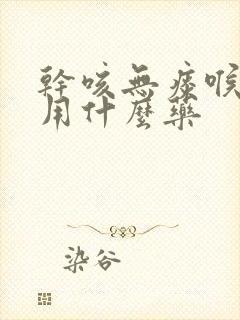 幹咳無痰喉
用什麼藥
染谷